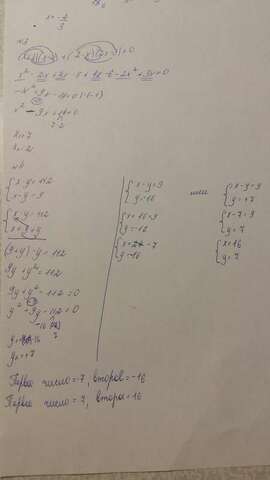 x = -2/3
N3
x² - 2x + 3x - 6 + 4x - 6 - 2x² + 3x = 0
-x² + 9x - 14 = 0 |·(-1)
x² - 9x + 14 = 0
7·2
x₁ = 7
x₂ = 2
N4
{ x·y = 112
x - y = 9
{ x·y = 112
x = 9 + y
(9+y)·y = 112
9y + y² = 112
9y + y² - 112 = 0
y² + 9y - 112 = 0
y₂ = +7
{ x - y = 9
y = -16
{ x + 16 = 9
y = -16
y = -16
или
{ x - y = 9
y = +7
{ x - 7 = 9
y = 7
{ x = 16
y = 7
Первое число = -7, второе = -16
Первое число = 7, второе 16